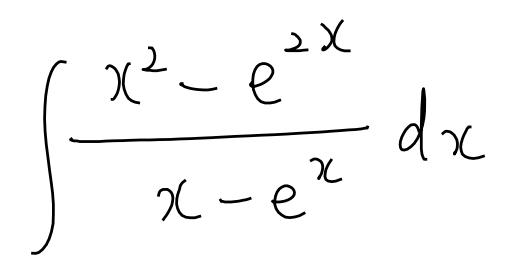 ∫ (x² − e²ˣ)/(x − eˣ) dx